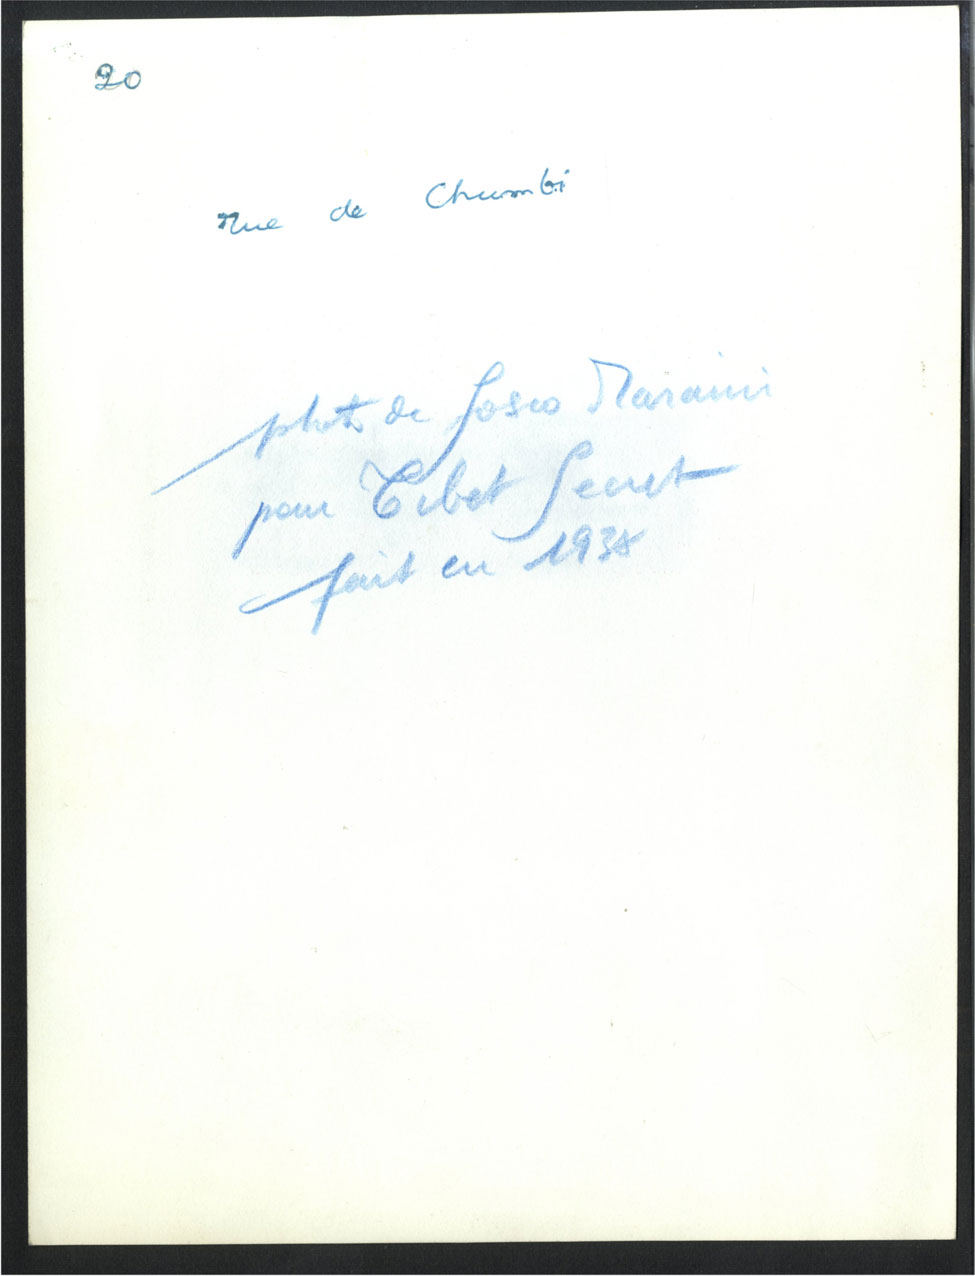 20
Rue de Chumbi
photo de Fosco Maraini
pour Tibet Secret
fait en 1938